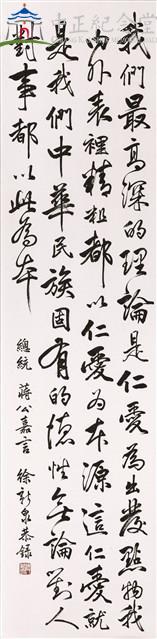 中正紀念堂
我們最高深的理論是仁愛為出發點物我
內外表裡精粗都以仁愛為本源這仁愛就
是我們中華民族固有的德性無論對人
對事都以此為本
總統 蔣公嘉言 徐新泉恭錄